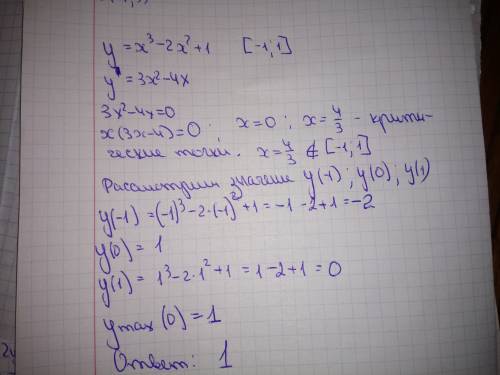 y = x³ - 2x² + 1 [-1; 1]
y' = 3x² - 4x
3x² - 4x = 0
x(3x - 4) = 0 ; x = 0 ; x = 4/3 - крити-
ческие точки. x = 4/3 ∉ [-1; 1]
Рассмотрим значение y(-1); y(0); y(1)
y(-1) = (-1)³ - 2·(-1)² + 1 = -1 - 2 + 1 = -2
y(0) = 1
y(1) = 1³ - 2·1² + 1 = 1 - 2 + 1 = 0
y max (0) = 1
Ответ: 1